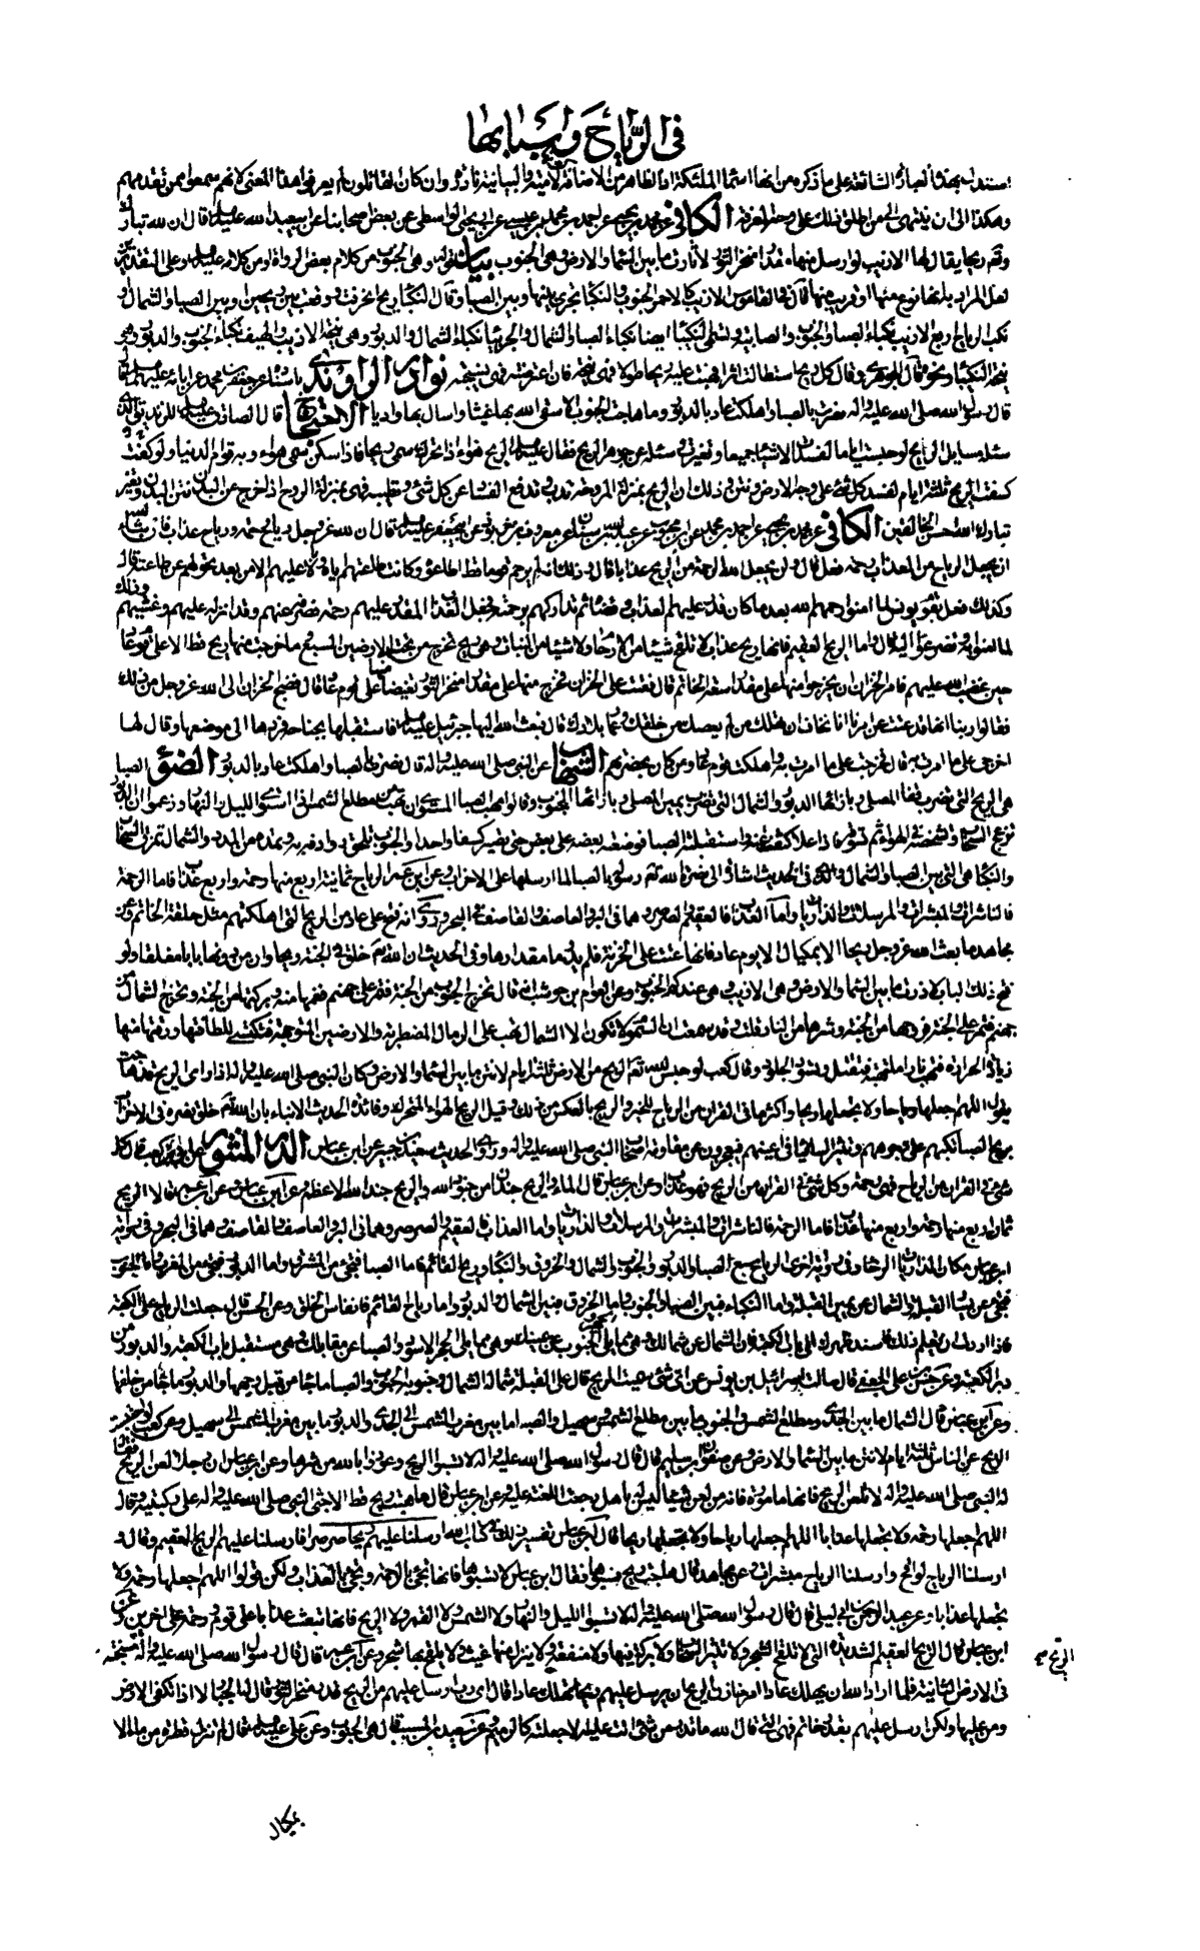 في الرياح وأسبابها
استند بهذه العبارة الشائعة على ما ذكره من انها اسماء الملئكة اذ الظاهر من الاضافة كونها لامية والبيانية نادرة وان كان القائلون لم يعرفوا هذا المعنى لانهم سمعوا ممن تقدمهم
وهكذا الى ان ينتهى الى من اطلق ذلك على وجه المعرفة الكافى عن محمد بن يحيى عن احمد بن محمد بن عيسى عن ابى يحيى الواسطى عن بعض اصحابنا عن ابيعبد الله عليه السلام قال ان لله تبارك
وتعالى ريحا يقال لها الازيب لو ارسل منها مقدار منخر الثور لاثارت ما بين السماء والارض وهى الجنوب بيان قوله وهى الجنوب من كلام بعض الرواة او من كلامه عليه السلام وعلى التقديرين
لعل المراد بها نوع منها او قريب منها قال فى القاموس الازيب كالاحمر الجنوب والنكباء تجرى بينها وبين الصبا وقال النكباء ريح انحرفت ووقعت بين ريحين او بين الصبا والشمال او
نكب الرياح اربع الازيب نكباء الصبا والجنوب والصابية وتسمى النكيباء ايضا نكباء الصبا والشمال والجربياء نكباء الشمال والدبور وهى نيحة الازيب والهيف نكباء الجنوب والدبور وهى
نيحة النكيباء ونحوه قال الجوهرى وقال كل ريح استطالت اثرا فهبت عليه ريح طولا فهى نيحة فان اعترضته فهى نسيجة نوادر الراوندى باسناده عن جعفر بن محمد عن آبائه عليهم السلام قال
قال رسول الله صلى الله عليه وآله نصرت بالصبا واهلكت عاد بالدبور وما هاجت الجنوب الا سقى الله بها غيثا واسال بها واديا الاحتجاج قال الصادق عليه السلام للزنديق الذى
سئله مسايل الريح لو حبست اياما لفسدت الاشياء جميعا وتغيرت وسئله عن جوهر الريح فقال عليه السلام الريح هواء اذا تحرك سمى ريحا فاذا سكن سمى هواء وبه قوام الدنيا ولو كفت
كفت الريح ثلثة ايام لفسد كل شىء على وجه الارض ونتن وذلك ان الريح بمنزلة المروحة تذب وتدفع الفساد عن كل شىء وتطيبه فهى بمنزلة الروح اذا خرج عن البدن نتن البدن وتغير
تبارك الله احسن الخالقين الكافى عن محمد بن يحيى عن احمد بن محمد عن ابن محبوب عن عبد الله بن سنان عن معروف بن خربوذ عن ابيجعفر عليه السلام قال ان لله عز وجل رياح رحمة ورياح عذاب فان شاء الله
ان يجعل الرياح من العذاب رحمة فعل قال ولن يجعل الله الرحمة من الريح عذابا قال وذلك انه لم يرحم قوما قط اطاعوه وكانت طاعتهم اياه وبالا عليهم الا من بعد تحولهم عن طاعته قال
وكذلك فعل بقوم يونس لما امنوا رحمهم الله بعد ما كان قدر عليهم العذاب وقضاه ثم تداركهم برحمته فجعل العذاب المقدر عليهم رحمة فصرفه عنهم وقد انزله عليهم وغشيهم وذلك
لما امنوا به وتضرعوا اليه قال واما الريح العقيم فانها ريح عذاب لا تلقح شيئا من الارحام ولا شيئا من النبات وهى ريح تخرج من تحت الارضين السبع وما خرجت منها ريح قط الا على قوم عاد
حين غضب الله عليهم فامر الخزان ان يخرجوا منها على مقدار سعة الخاتم قال فعتت على الخزان فخرج منها على مقدار منخر الثور تغيضا منها على قوم عاد قال فضج الخزان الى الله عز وجل من ذلك
فقالوا ربنا انها قد عتت عن امرنا انا نخاف ان تهلك من لم يعصك من خلقك وعمار بلادك قال فبعث الله اليها جبرئيل عليه السلام فاستقبلها بجناحه فردها الى موضعها وقال لها
اخرجى على ما امرت به قال فخرجت على ما امرت به واهلكت قوم عاد ومن كان بحضرتهم الشهاب عن النبى صلى الله عليه وآله قال نصرت بالصبا واهلكت عاد بالدبور الضوء الصبا
هى الريح التى تضرب قفا المصلى وبازائها الدبور والشمال التى تضرب يمين المصلى وبازائها الجنوب وقالوا مهب الصبا المستوى ان تهب من مطلع الشمس اذا استوى الليل والنهار وزعموا ان الدبور
تزعج السحاب وتشخصه فى الهواء ثم تسوقه فاذا علا كشفت عنه واستقبلته الصبا فوضعت بعضه على بعض حتى يصير كسفا واحدا والجنوب تلحق روادفه به وتمده من المدد والشمال تمزق السحاب
والنكباء هى التى بين الصبا والشمال وفى الحديث اشارة الى نصرة الله تعالى رسوله بالصبا لما ارسلها على الاحزاب وعن ابن عمر الرياح ثمانية اربع منها رحمة واربع عذاب فاما الرحمة
فالناشرات والمبشرات والمرسلات والذاريات واما العذاب فالعقيم والصرصر وهما فى البر والعاصف والقاصف فى البحر وروى انه فتح على عاد من الريح التى اهلكتهم مثل حلقة الخاتم وعن
مجاهد ما بعث الله عز وجل ريحا الا بمكيال الا يوم عاد فانها عتت على الخزنة فلم يدر ما مقدارها وفى الحديث ان الله تعالى خلق فى الجنة ريحا وان من دونها بابا مغلقا ولو
فتح ذلك الباب لاذرت ما بين السماء والارض وهى الازيب وهى عندكم الجنوب وعن العوام بن حوشب انه قال تخرج الجنوب من الجنة فتمر على جهنم فغمها منه وبركتها من الجنة وتخرج الشمال من
جهنم فتمر على الجنة فروحها من الجنة وشرها من النار قلت وقد سمعت ان السموم لا تكون الا الشمال تهب على الرمال المضطربة والارضين المتوهجة فتكتسى للطافتها ورقتها منها
زيادة الحرارة فتهب نارا ملتهبة فتقتل وتشوى الجلود وقال كعب لو حبس الله تعالى الريح من الارض ثلثة ايام لانتن ما بين السماء والارض وكان النبى صلى الله عليه وآله اذا راى الريح فزعا
يقول اللهم اجعلها رياحا ولا تجعلها ريحا واكثر ما فى القران من الرياح للخير والريح بالعكس من ذلك وقيل الريح الهواء المتحرك وفائدة الحديث الانباء بان الله تعالى خلق نصره فى الاحزاب
بريح الصبا تكبهم على وجوههم وتثير السافياء فى اعينهم فيعجزون عن مقاومة اصحاب النبى صلى الله عليه وآله وروى الحديث سعيد بن جبير عن ابن عباس الدر المنثور عن ابى بن كعب قال كل
شىء فى القران من الرياح فهى رحمة وكل شىء فى القران من الريح فهو عذاب وعن ابن عباس قال الماء والريح جندان من جنود الله والريح جند الله الاعظم وعن ابن عباس وعن ابن عمر قالا الريح
ثمان اربع منها رحمة واربع منها عذاب فاما الرحمة فالناشرات والمبشرات والمرسلات والذاريات واما العذاب فالعقيم والصرصر وهما فى البر والعاصف والقاصف وهما فى البحر وفى رواية
ابن عباس مكان الذاريات الرخاء وفى رواية اخرى الرياح سبع الصبا والدبور والجنوب والشمال والخروق والنكباء وريح القائم فاما الصبا فتجىء من المشرق واما الدبور فتجىء من المغرب واما الجنوب
فتجىء عن يسار القبلة والشمال عن يمين القبلة واما النكباء فبين الصبا والجنوب واما الخروق فبين الشمال والدبور واما ريح القائم فانفاس الخلق وعن الحسن قال جعلت الرياح على الكعبة
فاذا اردت ان تعلم ذلك فاسند ظهرك الى باب الكعبة فان الشمال عن شمالك وهى مما يلى الحجر والجنوب عن يمينك وهو مما يلى الحجر الاسود والصبا عن مقابلك وهى مستقبل باب الكعبة والدبور من
دبر الكعبة وعن حسين بن على الجعفى قال سالت اسرائيل بن يونس عن اى شىء سميت الريح قال على القبلة شماله الشمال وجنوبه الجنوب والصبا ما جاء من قبل وجهها والدبور ما جاء من خلفها
وعن ابن عباس قال الشمال ما بين الجدى ومطلع الشمس والجنوب ما بين مطلع الشمس وسهيل والصبا ما بين مغرب الشمس الى الجدى والدبور ما بين مغرب الشمس الى سهيل وعن كعب لو احتبست
الريح عن الناس ثلثة ايام لانتن ما بين السماء والارض وعن صفوان بن سليم قال قال رسول الله صلى الله عليه وآله لا تسبوا الريح وعوذوا بالله من شرها وعن ابن عباس ان رجلا لعن الريح فقال
له النبى صلى الله عليه وآله لا تلعن الريح فانها مامورة فانه من لعن شيئا ليس له باهل رجعت اللعنة عليه وعن ابن عباس قال ما هبت ريح قط الا جثى النبى صلى الله عليه وآله على ركبتيه وقال
اللهم اجعلها رحمة ولا تجعلها عذابا اللهم اجعلها رياحا ولا تجعلها ريحا قال ابن عباس تفسير ذلك فى كتاب الله ارسلنا عليهم ريحا صرصرا فارسلنا عليهم الريح العقيم وقال و
ارسلنا الرياح لواقح وارسلنا الرياح مبشرات وعن مجاهد قال هاجت ريح فسبوها فقال ابن عباس لا تسبوها فانها تجىء بالرحمة وتجىء بالعذاب ولكن قولوا اللهم اجعلها رحمة ولا
تجعلها عذابا وعن عبد الرحمن بن ابى ليلى قال قال رسول الله صلى الله عليه وآله لا تسبوا الليل والنهار ولا الشمس ولا القمر ولا الريح فانها تبعث عذابا على قوم ورحمة على اخرين وعن
ابن عباس قال الريح العقيم الشديدة التى لا تلقح الشجر ولا تثير السحاب ولا بركة فيها ولا منفعة ولا ينزل منها غيث ولا يلقح بها شجر وعن ابن عمر قال قال رسول الله صلى الله عليه وآله مسجنة
الريح م
فى الارض الثانية فلما اراد الله ان يهلك عادا امر خازن الريح ان يرسل عليهم ريحا تهلك عادا قال اى رب ارسل عليهم من الريح قدر منخر الثور قال له الجبار لا اذا تكفى الارض
ومن عليها ولكن ارسل عليهم بقدر خاتم فهى التى قال الله ما تذر من شىء اتت عليه الا جعلته كالرميم وعن سعيد بن المسيب قال هى الجنوب وعن على عليه السلام قال لم تنزل قطرة من ماء الا
بمكيال